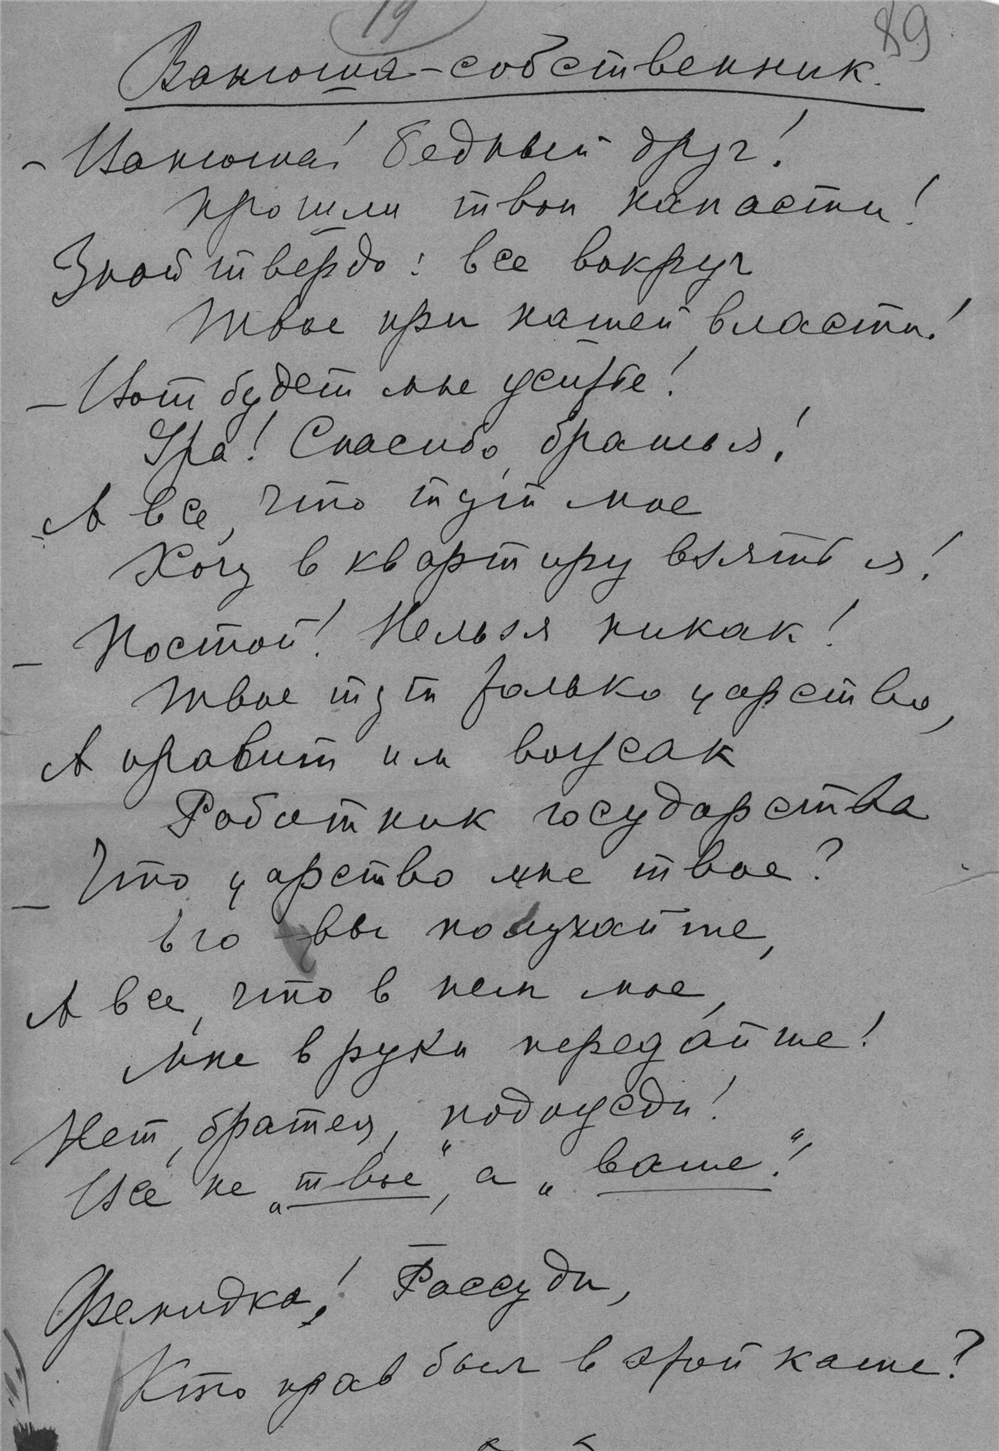 19
89
Ванюша-собственник.
- Ванюша! бедный друг!
Прошли твои напасти!
Знай твердо: все вокруг
Твое при нашей власти!
- Вот будет мне житье!
Ура! Спасибо, братья!
А все, что тут мое
Хочу в квартиру взять я!
- Постой! Нельзя никак!
Твое тут только царство,
А правит им вожак
Работник государства
- Что царство мне твое?
Его вы получайте,
А все, что в нем мое,
Мне в руки передайте!
Нет, братец, подожди!
Все не „твое“, а „ваше“!
Фемидка! Рассуди,
Кто прав был в этой каше?